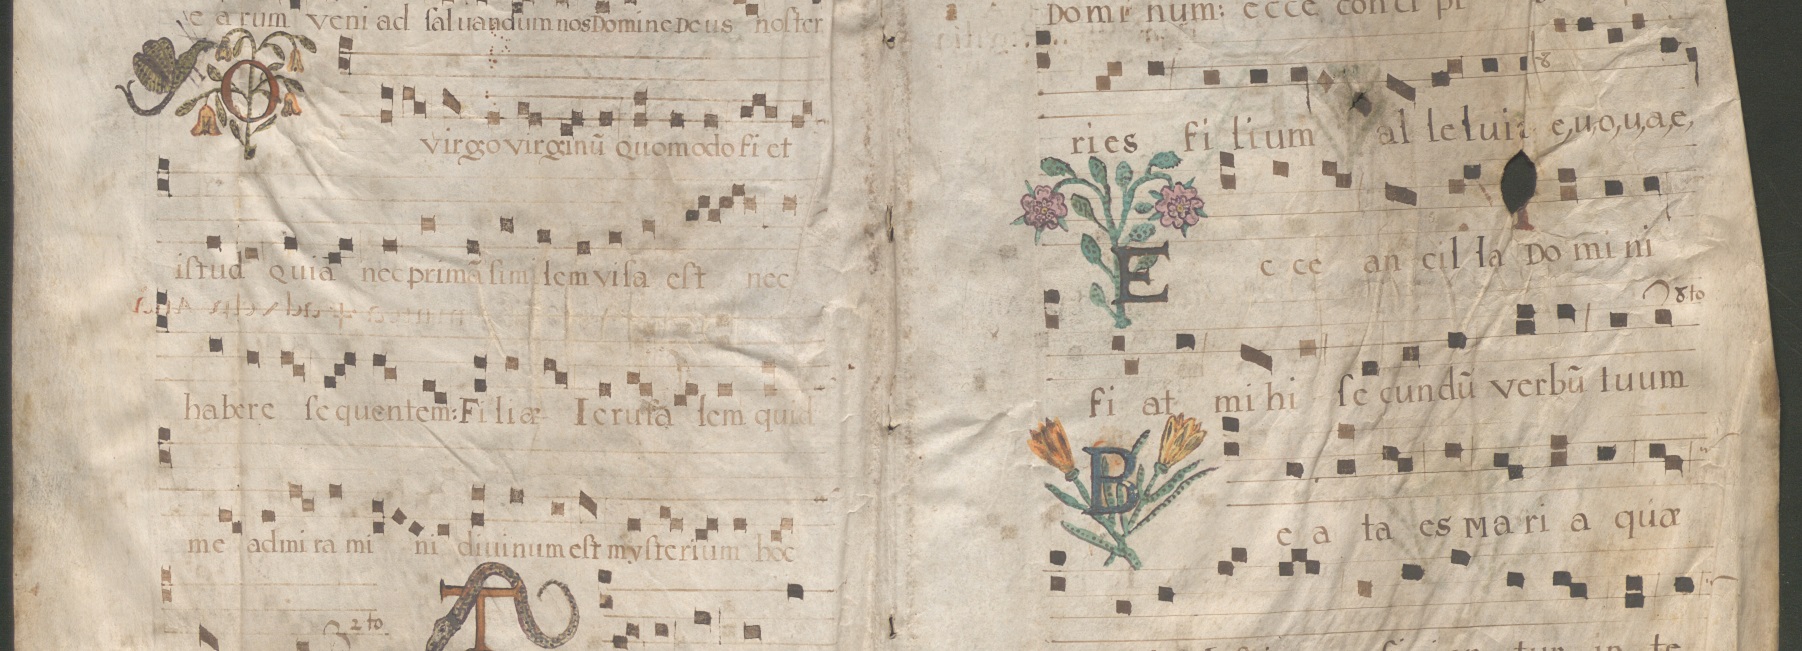 earum veni ad saluandum nos Domine Deus noster
O
virgo virginū Quomodo fiet
istud quia nec primā similem visa est nec
habere sequentem: Filiæ Ierusalem quid
me admiramini diuinum est mysterium hoc
2 to
Dominum: ecce concipi
8
ries filium alleluia e,u,o,u,a,e,
E
cce ancilla Domini
8 to
fiat mihi secundū verbū tuum
B
eata es Maria quæ
tur in te